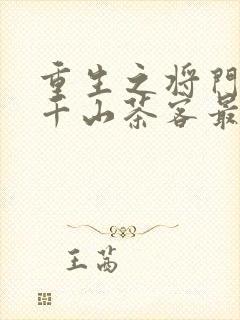 重生之将门
千山茶客最
王茜